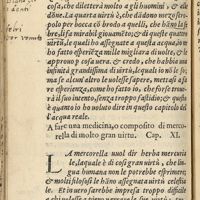 denti
per uomito
cosa, che diletterà molto a gli huomini, & a
donne. La quarta uirtù è, che dādone mezzo sto-
pel per bocca a colui, che hà mal
bre, lo fara mirabil giouamēto; & di queste quattro
uirtù, le quali ho assegnate a questa acqua, io ne ho
fatto esperienza mille migliara di uolte, & sempre
approuo la cosa uera, & credo, che habbia una
infinità grandissima di uirtù, le quali io non sò,
ma se alcuno altro le uolesse sapere, metta si a far
esperienza, come ho fatto io, che forse trouerà
se stesso, senza troppo fastidio; & questo è
quanto io ho uoluto dire in questo capitolo del
l'acqua reale.
A fare una medicina, o composito di mercu-
rella di molto gran uirtu. Cap. XI.
LA mercorella uuol dir herba mercuria
le, la quale è di così gran uirtù, che lin-
gua humana non le potrebbe esprimere;
& molti filosofi le hāno assegnato uirtù celeste
le. Et in uero sarebbe impresa troppo difficile